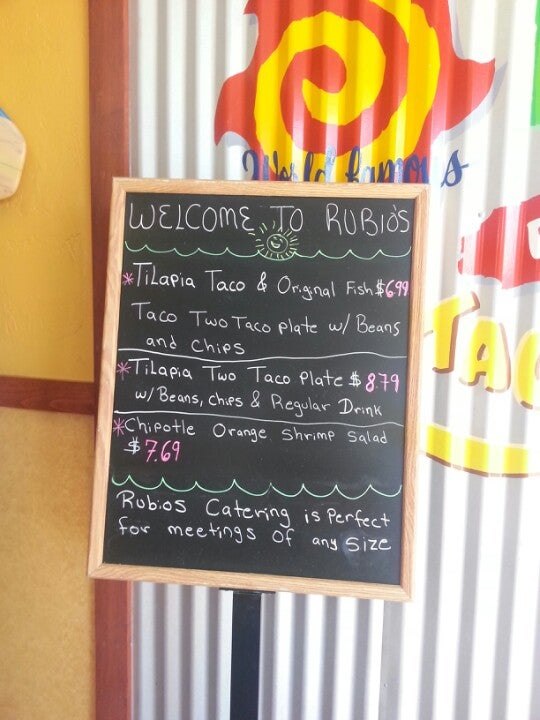 World famous
WELCOME TO RUBIOS
*Tilapia Taco & Original Fish $6.99
Taco Two Taco plate w/ Beans
and Chips
*Tilapia Two Taco Plate $8.79
w/Beans, chips & Regular Drink
*Chipotle Orange Shrimp Salad
$7.69
Rubios Catering is Perfect
for meetings of any size
TAC